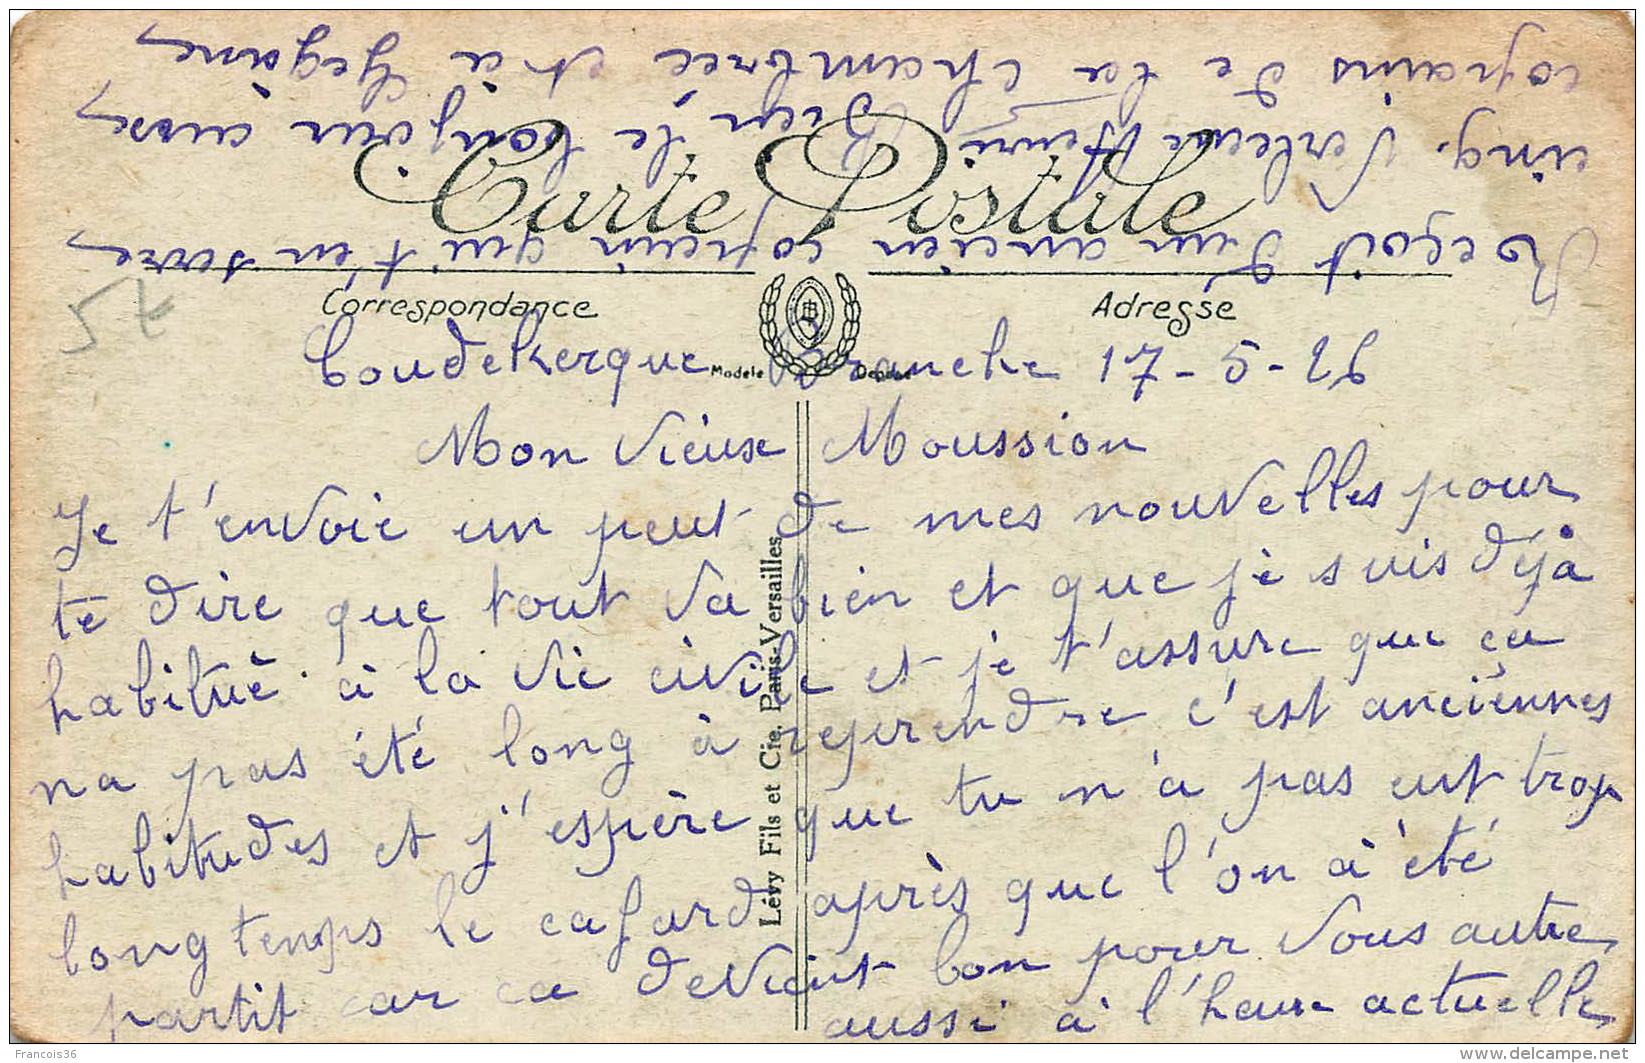 Carte Postale
Correspondance
Adresse
Modèle Déposé
57
Coudekerque Branche 17-5-26
Mon Vieux Moussion
Je t'envoie un peut de mes nouvelles pour
te dire que tout va bien et que je suis déjà
habitué à la vie civile et je t'assure que ca
na pas été long à reprendre c'est anciennes
habitudes et j'espère que tu n'a pas eut trop
longtemps le cafard après que l'on à été
partit car ca devient bon pour vous autre
aussi à l'heure actuelle
Reçoit d'un ancien copain qui t'en serre
cinq. Verleene Henri Bien le bonjour aux
copains de la chambrée et à Gegène
Lévy Fils et Cie, Paris-Versailles
Francois36
www.delcampe.net